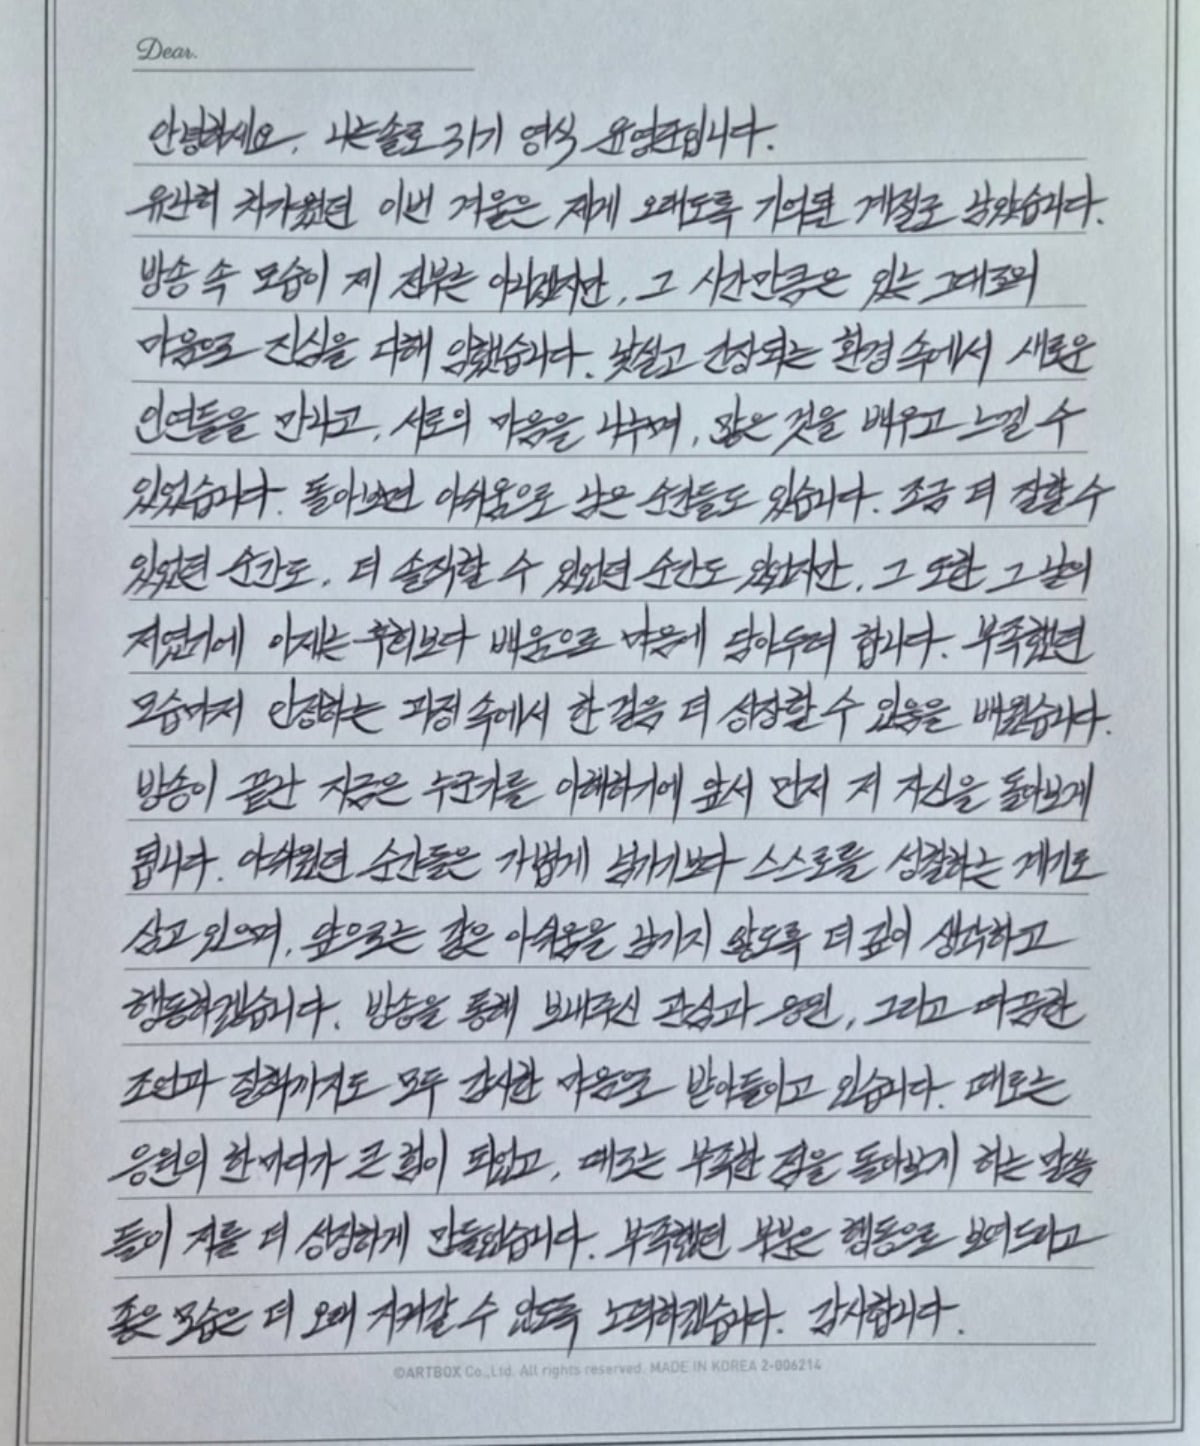 Dear.
안녕하세요. 나는솔로 31기 영식 입니다.
유난히 차가웠던 이번 겨울은 제게 오래도록 기억될 계절로 남았습니다.
방송 속 모습이 제 전부는 아니겠지만, 그 시간만큼은 있는 그대로의
마음으로 진심을 다해 임했습니다. 낯설고 긴장되는 환경 속에서 새로운
인연들을 만나고, 서로의 마음을 나누며, 많은 것을 배우고 느낄 수
있었습니다. 돌아보면 아쉬움으로 남은 순간들도 있습니다. 조금 더 잘할 수
있었던 순간도, 더 솔직할 수 있었던 순간도 있었지만, 그 또한 그 날의
저였기에 이제는 후회보다 배움으로 마음에 담아두려 합니다. 부족했던
모습마저 인정하는 과정 속에서 한 걸음 더 성장할 수 있음을 배웠습니다.
방송이 끝난 지금은 누군가를 이해하기에 앞서 먼저 저 자신을 돌아보게
됩니다. 아쉬웠던 순간들은 가볍게 넘기기보다 스스로를 성찰하는 계기로
삼고 있으며, 앞으로는 같은 아쉬움을 남기지 않도록 더 깊이 생각하고
행동하겠습니다. 방송을 통해 보내주신 관심과 응원, 그리고 따끔한
조언과 질책까지도 모두 감사한 마음으로 받아들이고 있습니다. 때로는
응원의 한마디가 큰 힘이 되었고, 때로는 부족한 점을 돌아보게 하는 말씀
들이 저를 더 성장하게 만들었습니다. 부족했던 부분은 행동으로 보여드리고
좋은 모습은 더 오래 지켜갈 수 있도록 노력하겠습니다. 감사합니다.
©ARTBOX Co.,Ltd. All rights reserved. MADE IN KOREA 2-006214